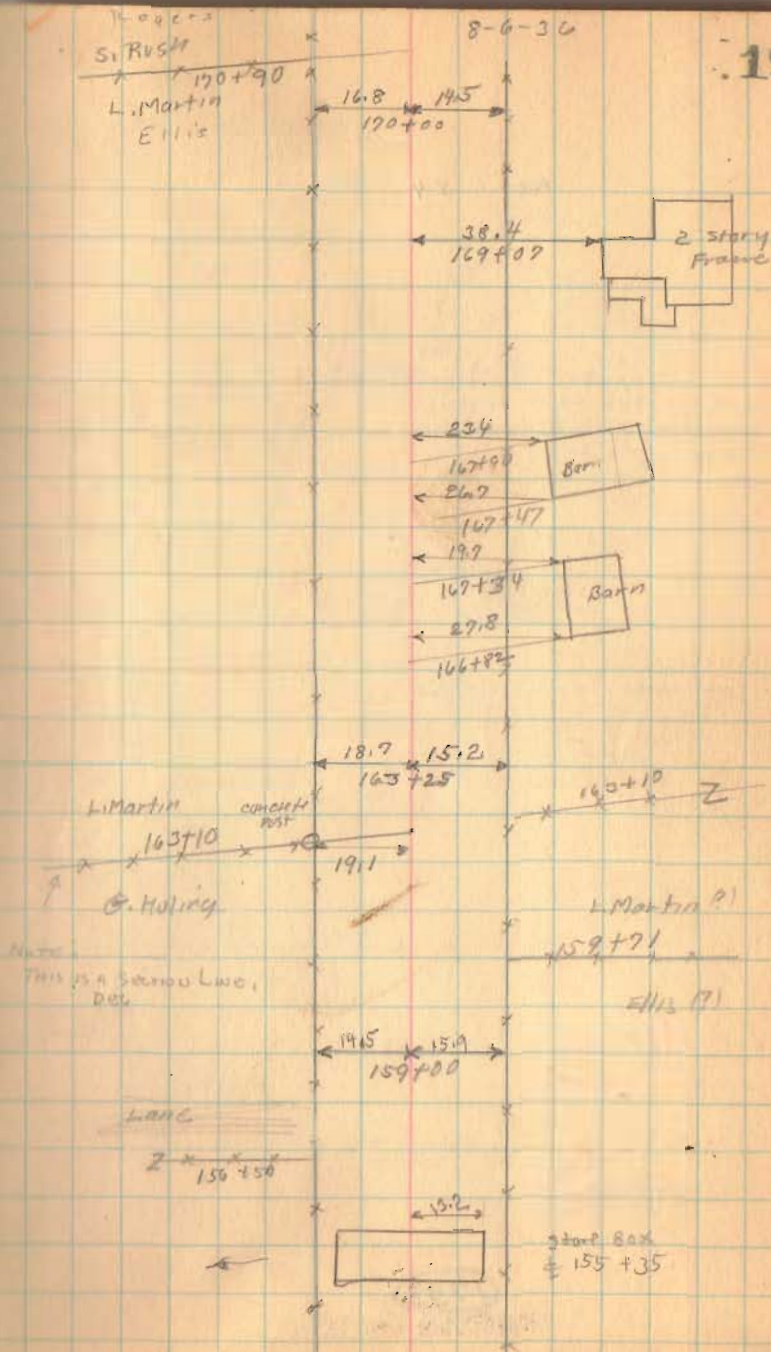 Rogers
8-6-36
S. Rush
170+90
L. Martin
Ellis
16.8 14.5
170+00
38.4
169+07
2 Story
Frame
23.4
167+90
Barn
26.7
167+47
19.7
167+34
Barn
27.8
166+82
18.7 15.2
163+25
163+10 Z
L. Martin
concrete
Post
163+10
19.1
G. Huling
L. Martin (?)
159+71
Note:
This is a Section Line,
Ellis (?)
14.5 15.9
159+00
Lane
Z 156+50
13.2
Stone Box
155+35